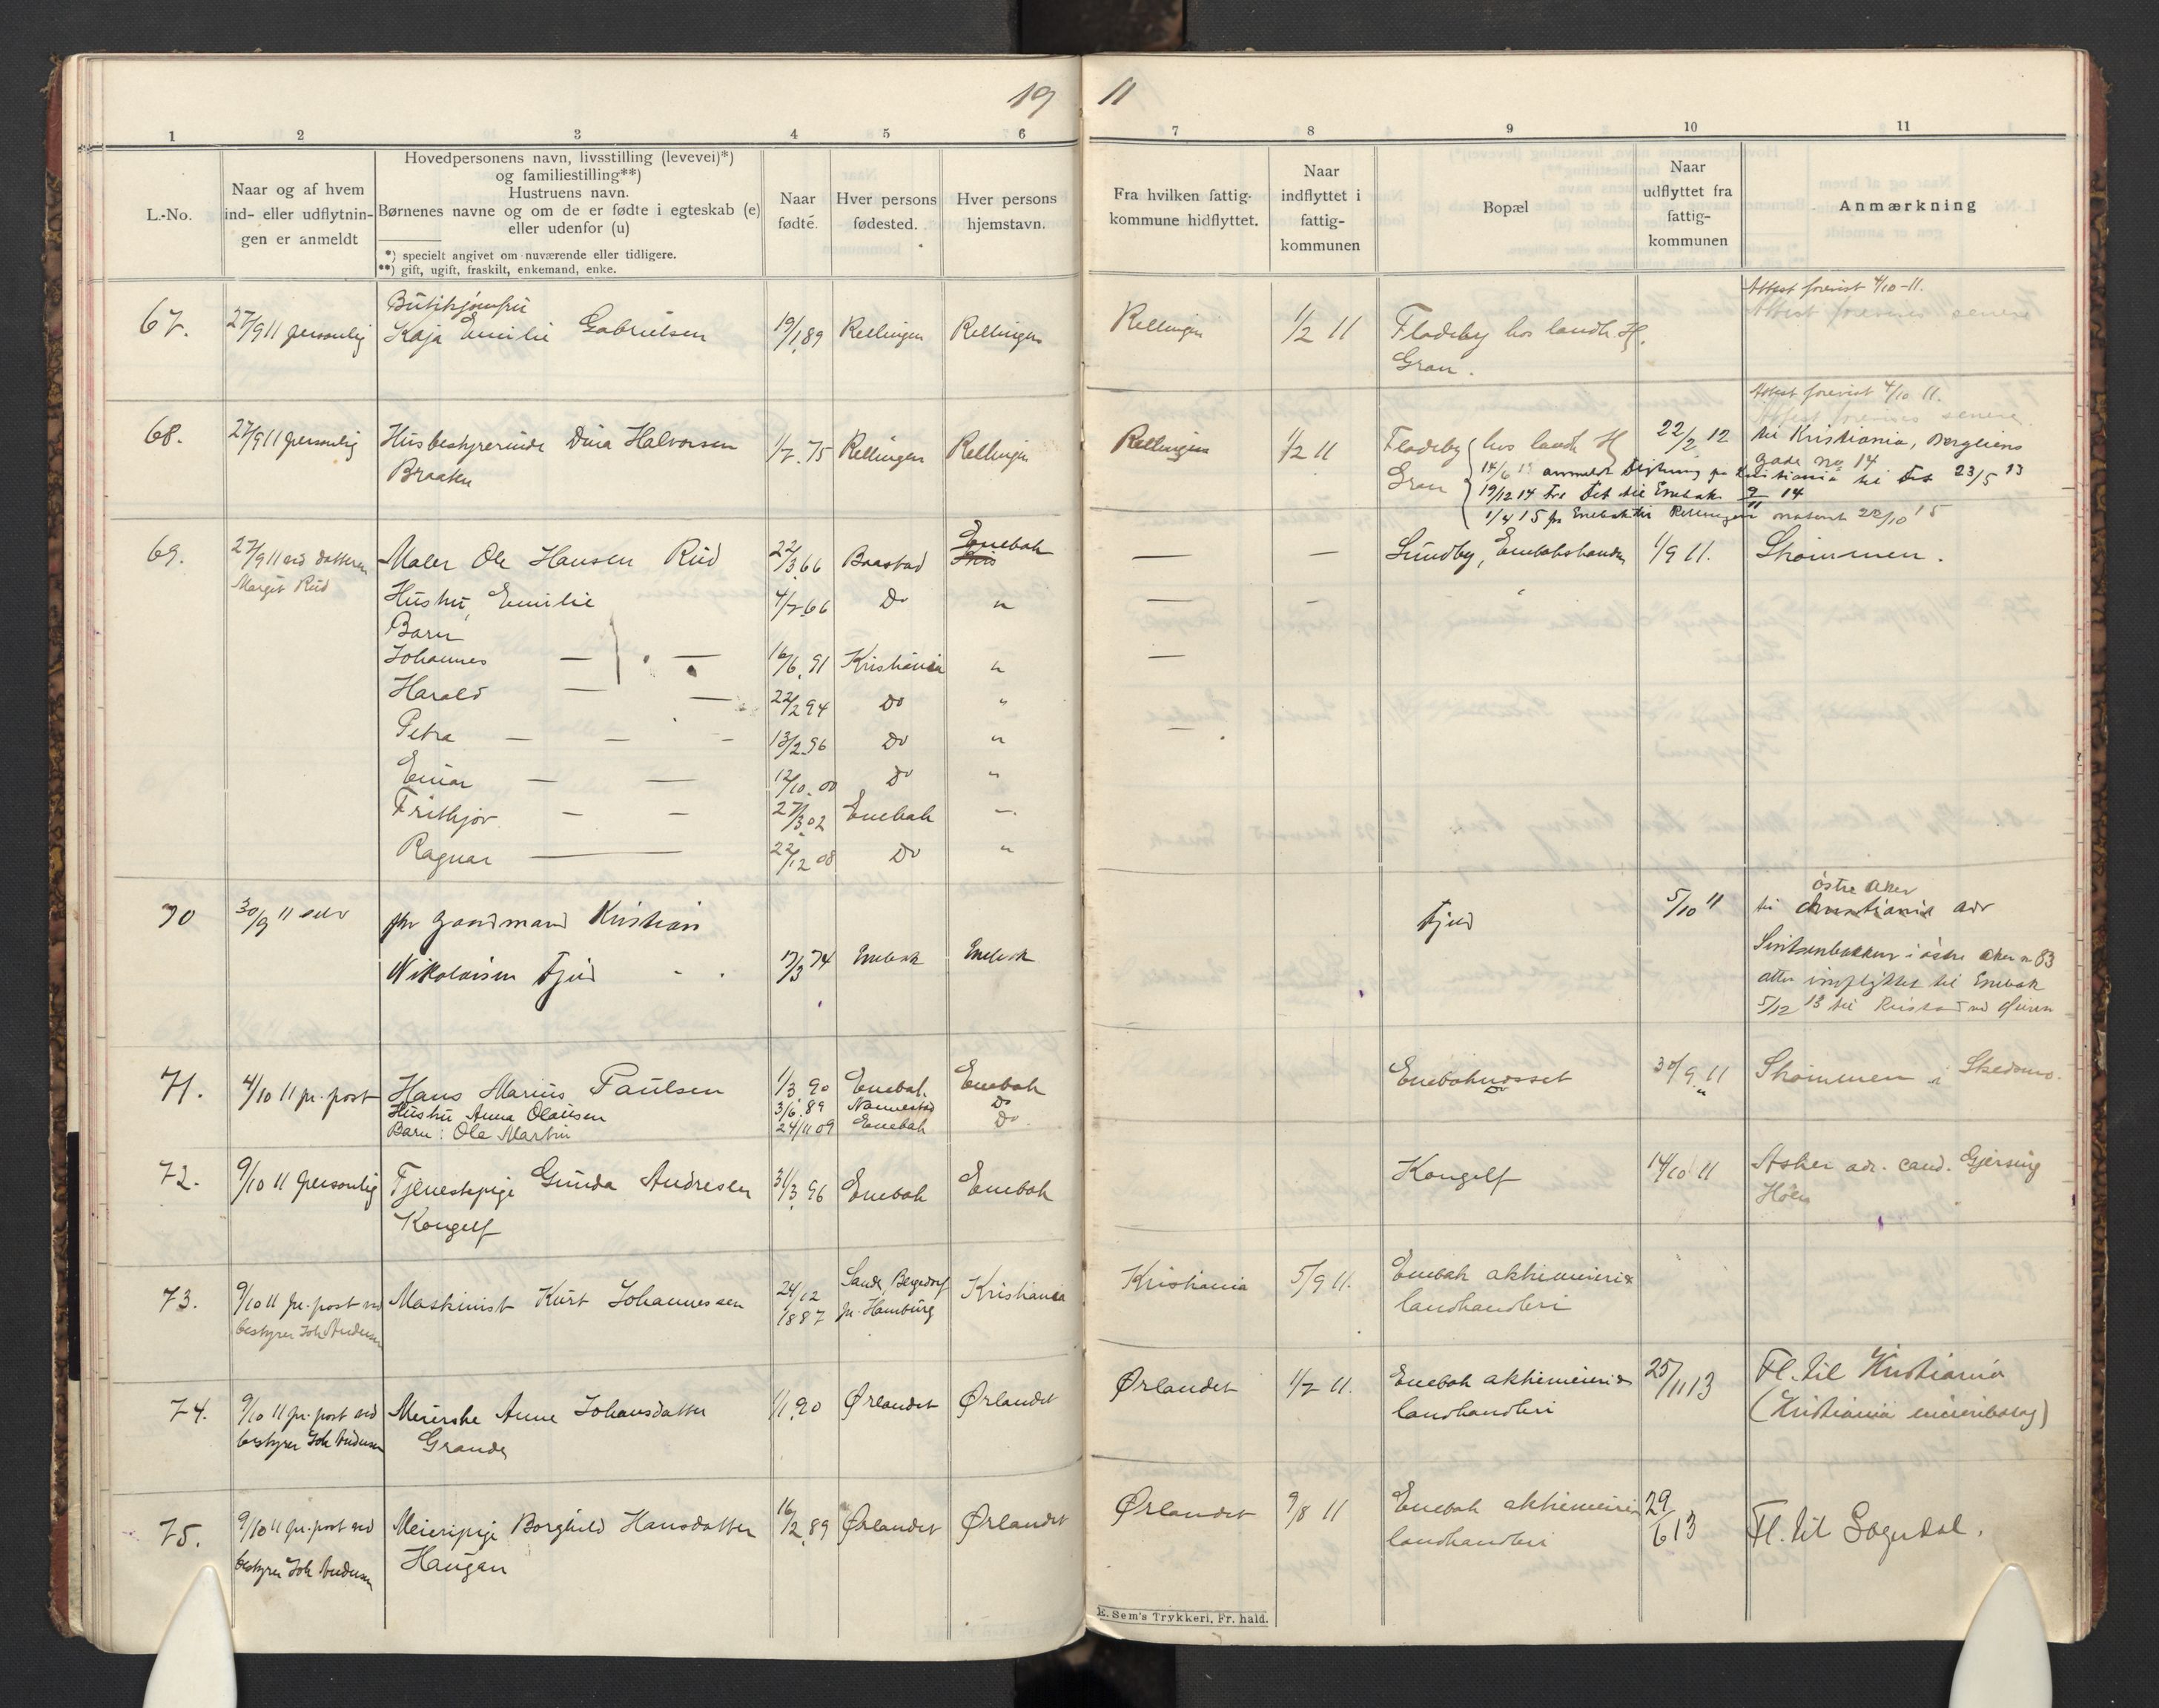 19 11
1 2 3 4 5 6 7 8 9 10 11
L.-No.
Naar og af hvem
ind- eller udflytnin-
gen er anmeldt
Hovedpersonens navn, livsstilling (levevei)*)
og familiestilling**)
Hustruens navn.
Børnenes navne og om de er fødte i egteskab (e)
eller udenfor (u)
*) specielt angivet om nuværende eller tidligere.
**) gift, ugift, fraskilt, enkemand, enke.
Naar
fødte.
Hver persons
fødested.
Hver persons
hjemstavn.
Fra hvilken fattig-
kommune hidflyttet.
Naar
indflyttet i
fattig-
kommunen
Bopæl
Naar
udflyttet fra
fattig-
kommunen
Anmærkning
Butikjomfru
Attest forevist 4/10-11.
Attest forevises senere
67. 27/9 11 personlig Kaja Emilie Gabrielsen 19/1.89 Rellingen Rellingen Rellingen 1/2 11 Fladeby hos landh. H.
Gran.
Attest forevist 4/10 11.
Attest forevises senere
68. 27/9 11 personlig Husbestyrerinde Dina Halvorsen 1/7.75 Rellingen Rellingen Rellingen 1/2 11 Fladeby hos landh H 22/2 12 til Kristiania,
Braaten Gran
gade no 14
14/6 13 anmeldt flytning fra Kristiania til 23/5 13
19/12 14 fra til Enebak 14
1/4 15 fra Enebak til Rellingen 22/10 15
69. 27/9 11 ved datteren Maler Ole Hansen Rud 22/3.66 Baastad Enebak — — Sundby, Enebak 1/9 11. Strømmen.
Margit Rud
Hustru, Emilie 4/7 66 Do " — —
Barn
Johannes — — 16/6.91 Kristiania " —
Harald — — 22/2 94 Do "
Petra — — - 13/2.96 Do " —
Einar — — 12/10.00 Do "
Frithjov — — 27/3.02 Enebak —.
Ragnar — 22/12 08 Do "
østre Aker
70 30/9 11 selv gaardmand Kristian Fjeld 5/10 11 til Christiania adr
Nikolaisen Fjeld 17/3 74 Enebak Enebak
Sinsenbakken i østre Aker n 83
atter indflyttet til Enebak
5/12 13 til
71. 4/10 11 pr. post Hans Marius Paulsen 1/3.90 Enebak. Enebak Enebaknesset 30/9.11 Strømmen i Skedsmo.
Hustru Anna Olausen 3/6.89 Nannestad Do Do "
Barn: Ole Martin 24/11 09 Enebak Do
72. 9/10 11 personlig Tjenestepige Gunda Andresen 31/3.96 Enebak Enebak Kongelf 14/10 11 Asker adr. cand. Gjersing
Kongelf
73. 9/10 11 pr. post ved Maskinist Kurt Johannessen 24/12 1887 Sande, Bergedorf pr. Hamburg Kristiania Kristiania 5/9 11. Enebak aktiemeieri &
bestyrer Joh Andersen landhandleri
74. 9/10 11 pr. post ved Meierske Anne Johansdatter 1/1.90 Ørlandet Ørlandet Ørlandet 1/7 11. Enebak aktiemeieri & 25/11 13 Fl. til Kristiania
bestyrer Joh Andersen Grande landhandleri (Kristiania meieribolag)
75. 9/10 11 pr. post ved Meieripige Borghild Hansdatter 16/2.89 Ørlandet Ørlandet Ørlandet 9/8 11 Enebak aktiemeieri 29/6 13 Fl. til Sogndal.
bestyrer Joh Andersen Haugan landhandleri
E. Sem's Trykkeri, Fr. hald.